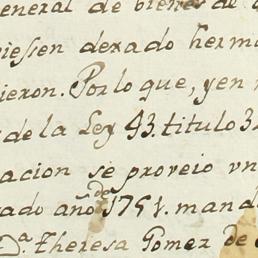 eneral de bienes de
iessen dexado herma
ieron. Por lo que, y en
de la Ley 43. titulo 3
acion se proveio vn
ado año de 1751. mand
D.ª Theresa Gomez de